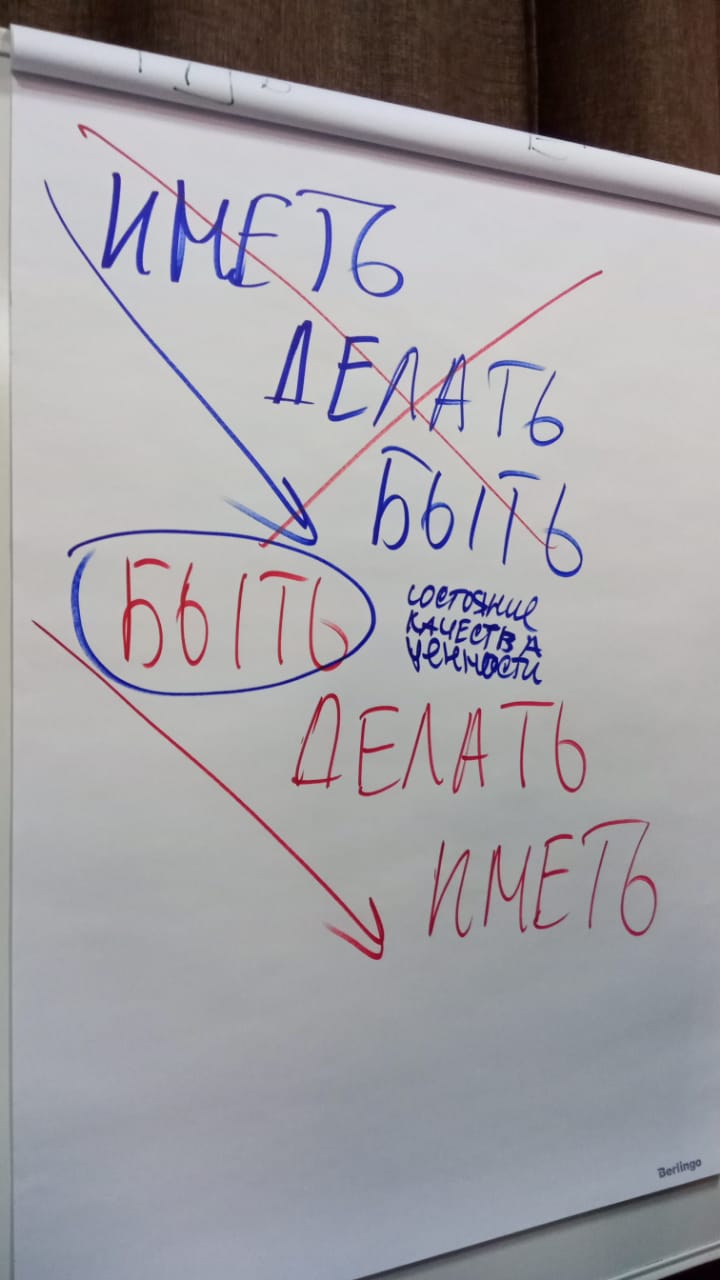 ИМЕТЬ
ДЕЛАТЬ
БЫТЬ
БЫТЬ
состояние
качества
ценности
ДЕЛАТЬ
ИМЕТЬ
Berlingo